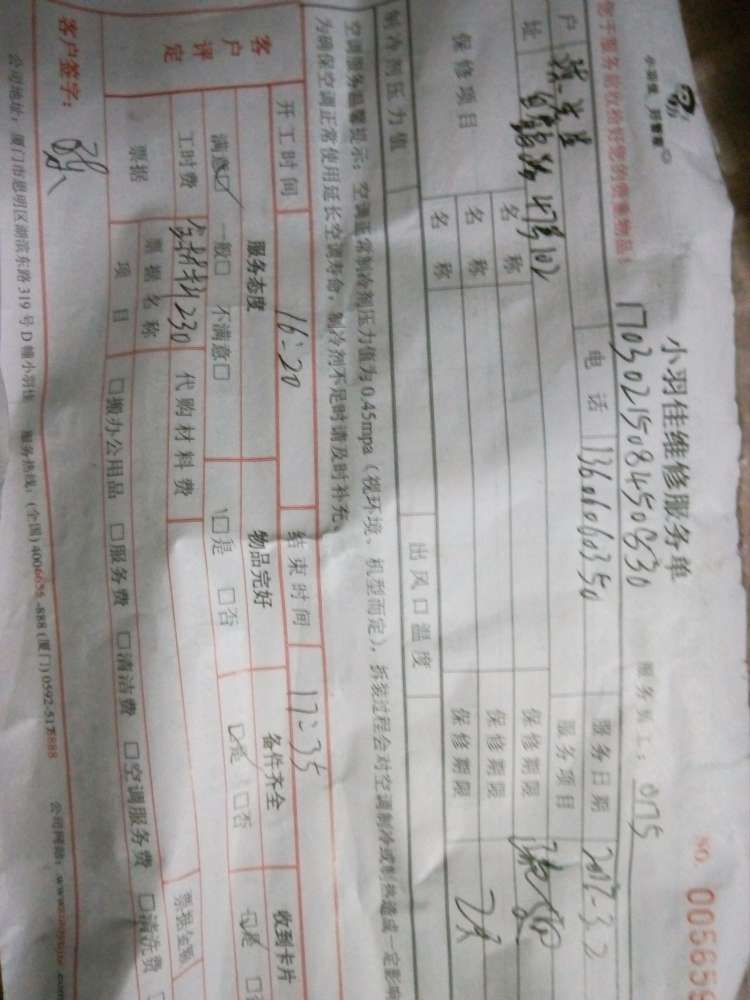 小羽佳 好管家
小羽佳维修服务单
NO. 005659
1703021508450830
服务员工：075
您于服务前收拾好您的贵重物品！
户
电话 13606060350
服务日期 2017-3.2
址 47号102
服务项目
保修项目
名称
保修期限
名称
保修期限
名称
保修期限
制冷剂压力值
出风口温度
空调服务温馨提示：空调正常制冷剂压力值为0.45mpa（视环境、机型而定），拆装过程会对空调制冷或制热造成一定影响
为确保空调正常使用延长空调寿命，制冷剂不足时请及时补充。
开工时间 16:20 结束时间 17:35
客户评定
服务态度 物品完好 备件齐全 收到卡片
满意☑ 一般□ 不满意□ □是 □否 □是 □否 □是
工时费 含材料230 代购材料费
票据 票据名称 票据金额
项目 □搬办公用品 □服务费 □清洁费 □空调服务费 □清洗费
客户签字：
公司地址：厦门市思明区湖滨东路319号D幢小羽佳 服务热线：(全国) 4006655-888 (厦门) 0592-5178888 公司网站：